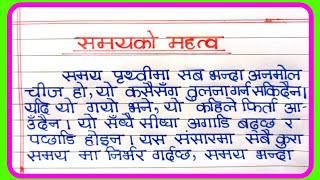 समयको महत्व
समय पृथ्वीमा सब भन्दा अनमोल
चीज हो, यो कसैसँग तुलना गर्न सकिदैन।
यदि यो गयो भने, यो कहिले फिर्ता आ-
उँदैन। यो सँधै सीधा अगाडि बढ्छ र
पछाडि होइन। यस संसारमा सबै कुरा
समय मा निर्भर गर्दछ, समय भन्दा